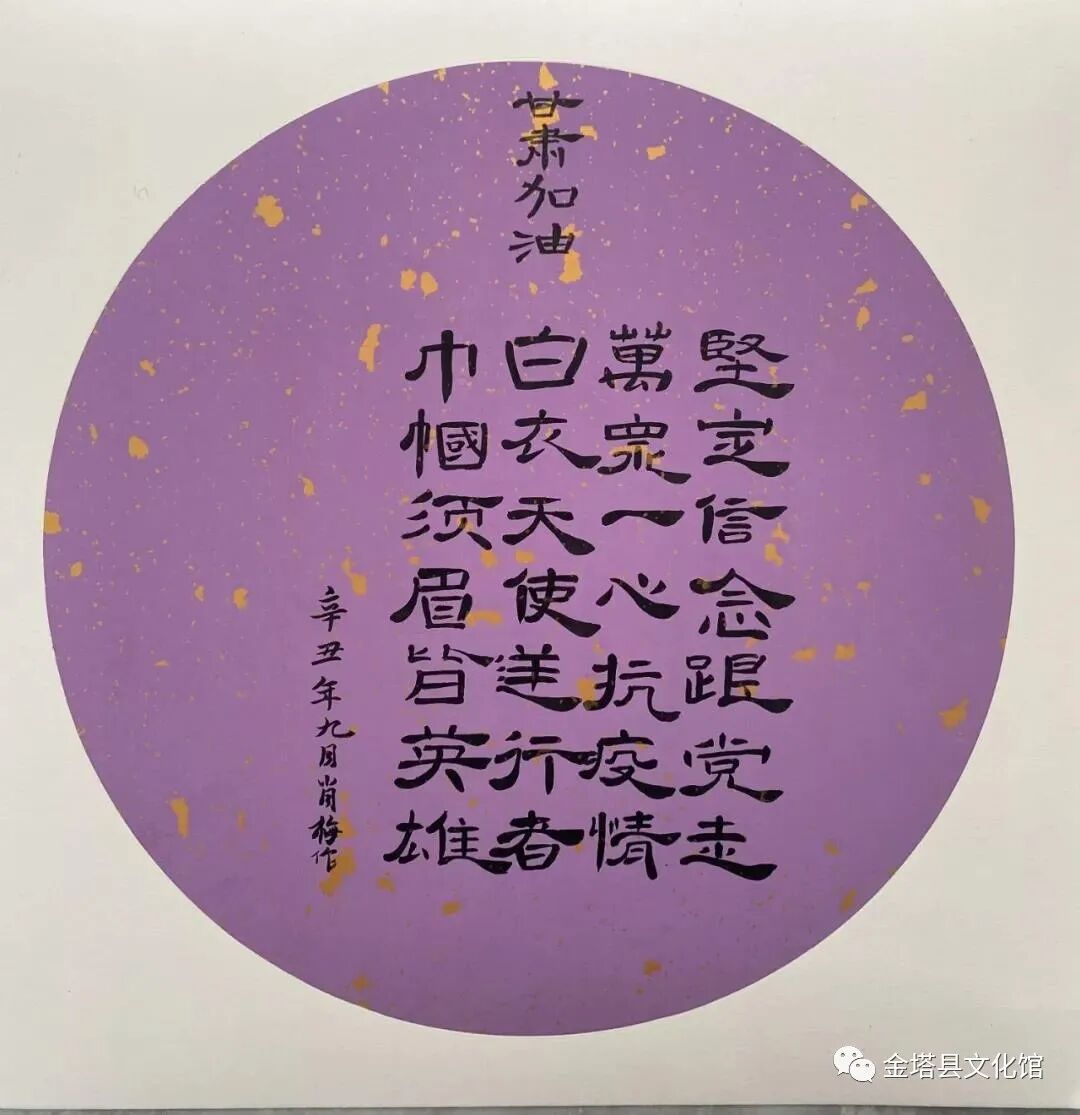 甘肃加油
堅定信念跟党走
萬眾一心抗疫情
白衣天使逆行者
巾幗须眉皆英雄
辛丑年九月肖梅作
金塔县文化馆